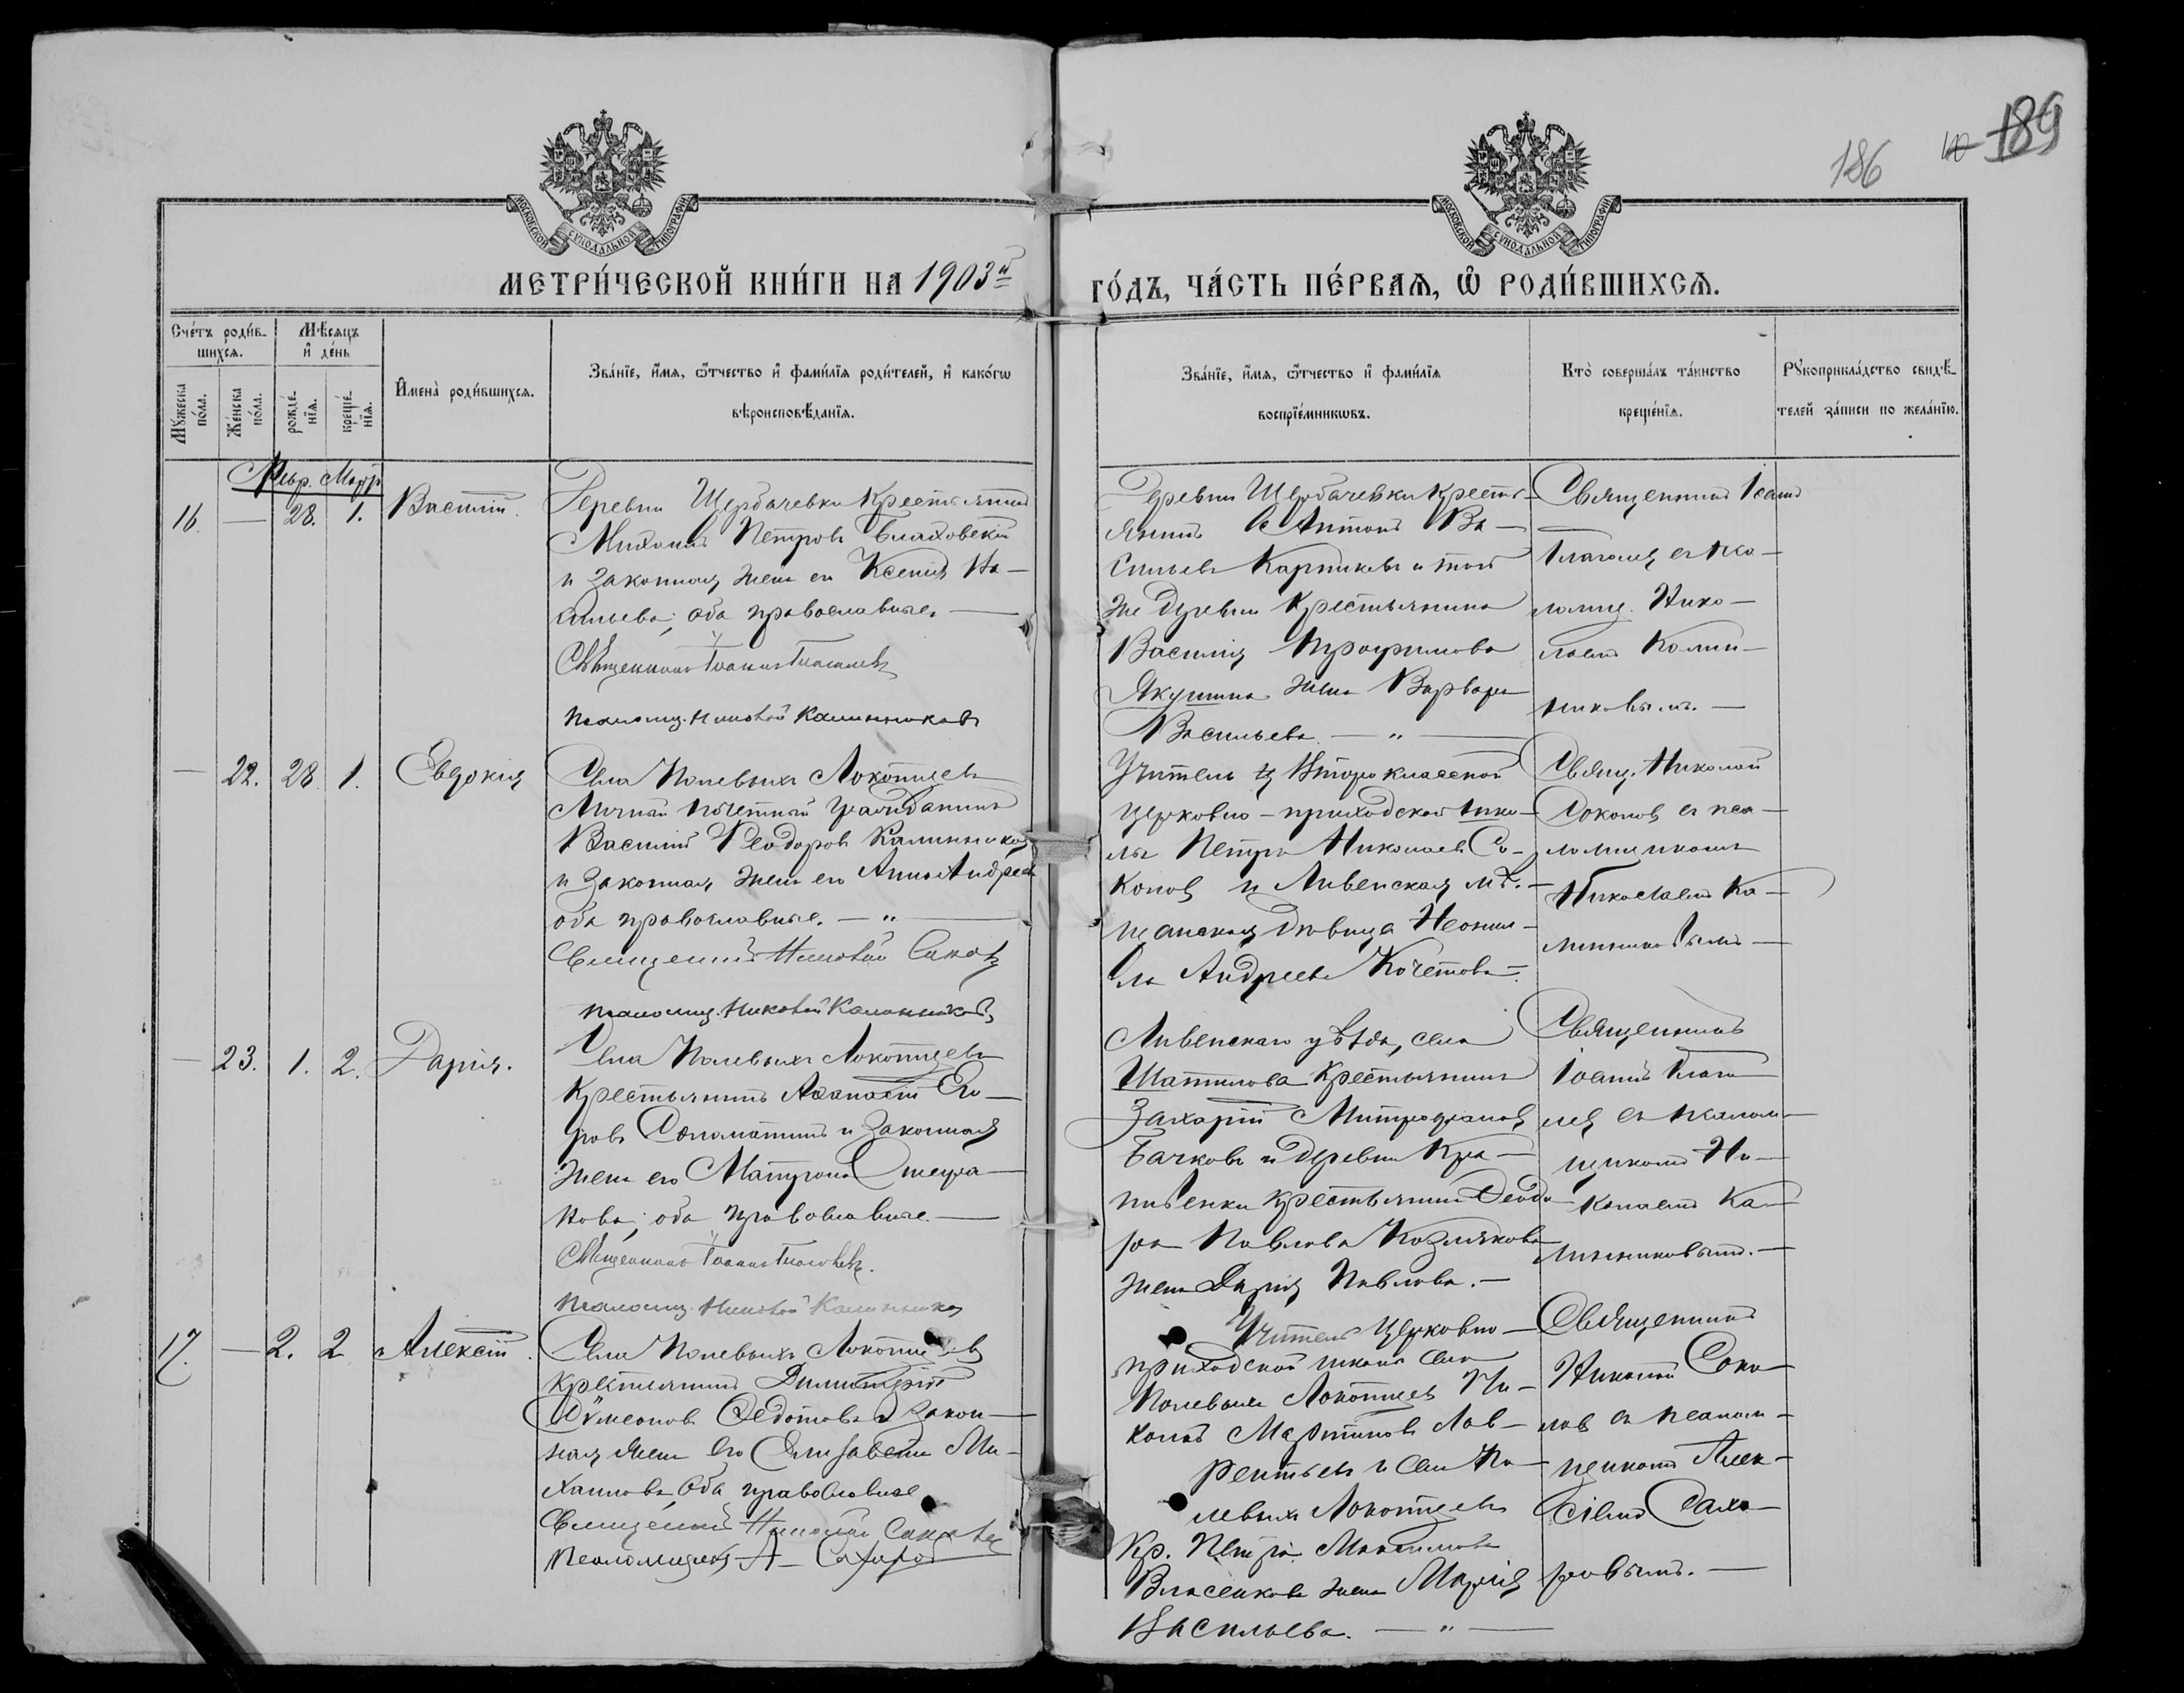 186
189
МОСКОВСКОЙ СУНОДАЛЬНОЙ ТИПОГРАФІИ
МОСКОВСКОЙ СУНОДАЛЬНОЙ ТИПОГРАФІИ
МЕТРИ́ЧЕСКОЙ КНИ́ГИ НА 1903й
ГО́ДЪ, ЧА́СТЬ ПЕ́РВАѦ, Ѽ РОДИ́ВШИХСѦ.
Сче́тъ роди́в-
шихсѧ.
Мѣ́сѧцъ
и҆ де́нь
Мꙋ́жеска
по́ла.
Же́нска
по́ла.
рожде́-
нїѧ.
креще́-
нїѧ.
И҆мена̀ роди́вшихсѧ.
Зва́нїе, и҆́мѧ, ѻ҆́тчество и҆ фами́лїѧ роди́телей, и҆ како́гѡ
вѣроисповѣ́данїѧ.
Зва́нїе, и҆́мѧ, ѻ҆́тчество и҆ фами́лїѧ
воспрїе́мникѡвъ.
Кто̀ соверша́лъ та́инство
креще́нїѧ.
Рꙋкоприкла́дство свидѣ́-
телей за́писи по жела́нїю.
Февр. Мар.
16 — 28. 1. Василій.
Деревни Щербачевки крестьянинъ
Михаилъ Петровъ
и законная жена его Ксенія Ва-
сильева; оба православные. —
Священникъ Іоаннъ Глаголевъ
псаломщ. Николай Калинниковъ
Деревни Щербачевки кресть-
янинъ Антонъ Ва-
сильевъ Карпиковъ и той
же деревни крестьянина
Василія Трофимова
Якушина жена Варвара
Васильева. — „ —
Священникъ Іоаннъ
Глаголевъ съ пса-
ломщ. Нико-
лаемъ Калин-
никовымъ. —
— 22. 28 1. Евдокія
Села Полевыхъ Локотцевъ
Личный почетный гражданинъ
Василій Ѳеодоровъ Калинниковъ
и законная жена его Анна Андреева
оба православные. — „ —
Священникъ Николай Соколовъ
псаломщ. Николай Калинниковъ
Учитель второклассной
церковно-приходской шко-
лы Петръ Николаевъ Со-
коловъ и Ливенская мѣ-
щанская дѣвица Неони-
ла Андреева Кочетова. —
Свящ. Николай
Соколовъ съ пса-
ломщикомъ
Николаемъ Ка-
линниковымъ —
— 23. 1. 2. Дарія.
Села Полевыхъ Локотцевъ
Крестьянинъ Аѳанасій Его-
ровъ Соломатинъ и законная
жена его Матрона Стефа-
нова; оба православные. —
Священникъ Іоаннъ Глаголевъ.
псаломщ. Николай Калинниковъ
Ливенскаго уѣзда, села
Шатилова крестьянинъ
Захарій Митрофановъ
Бачковъ и деревни Кра-
пивенки крестьянина Ѳеодо-
ра Павлова Козлякова
жена Дарія Павлова. —
Священникъ
Іоаннъ Глаго-
левъ съ псалом-
щикомъ Ни-
колаемъ Ка-
линниковымъ. —
17. — 2. 2 Алексій.
Села Полевыхъ Локотцевъ
крестьянинъ Димитрій
Сѵмеоновъ Ѳедотовъ и закон-
ная жена его Елисавета Ми-
хаилова, оба православные
Священникъ Николай Соколовъ
Псаломщикъ А. Сахаровъ
Учитель церковно-
приходской школы села
Полевыхъ Локотцевъ Ни-
колай Мартиновъ Лав-
рентьевъ и села По-
левыхъ Локотцевъ
Кр. Петра Максимова
Власенкова жена Марія
Васильева. — „ —
Священникъ
Николай Соко-
ловъ съ псалом-
щикомъ Алек-
сіемъ Саха-
ровымъ. —